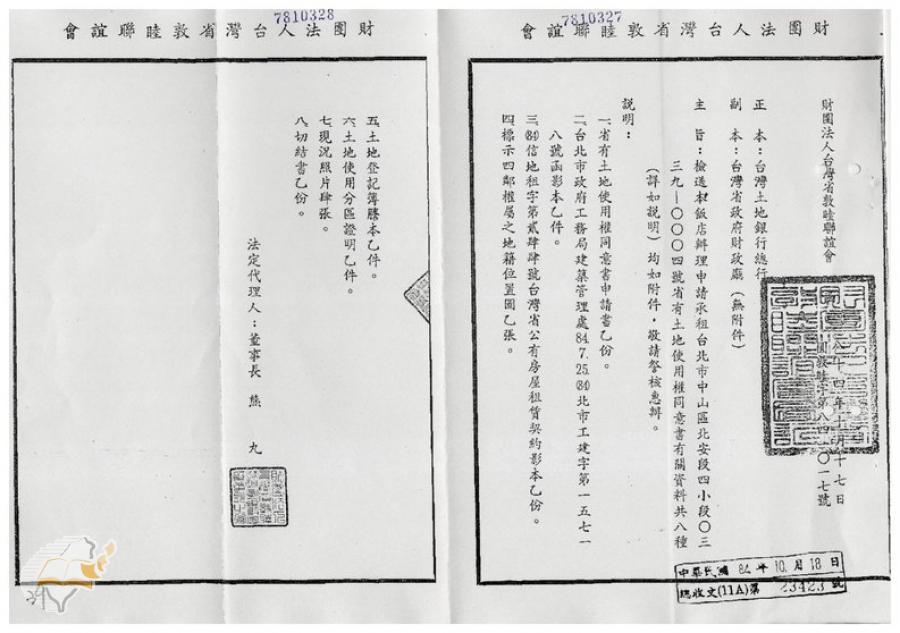 7810327
財團法人台灣省敦睦聯誼會
財團法人台灣省敦睦聯誼會
十四年十月十七日
敦睦字第八四 〇一七號
正　本：台灣土地銀行總行
副　本：台灣省政府財政廳（無附件）
主　旨：檢送本飯店辦理申請承租台北市中山區北安段四小段〇三
三九—〇〇〇四號省有土地使用權同意書有關資料共八種
（詳如說明）均如附件，敬請詧核惠辦。
說明：
一、省有土地使用權同意書申請書乙份。
二、台北市政府工務局建築管理處84.7.25.(84)北市工建字第一五七一
八號函影本乙件。
三、(84)信地租字第貳肆肆號台灣省公有房屋租賃契約影本乙份。
四、標示四鄰權屬之地籍位置圖乙張。
中華民國 84 年 10 月 18 日
總收文(11A)第 23423 號
7810328
財團法人台灣省敦睦聯誼會
五、土地登記簿謄本乙件。
六、土地使用分區證明乙件。
七、現況照片肆張。
八、切結書乙份。
法定代理人：董事長　熊　丸